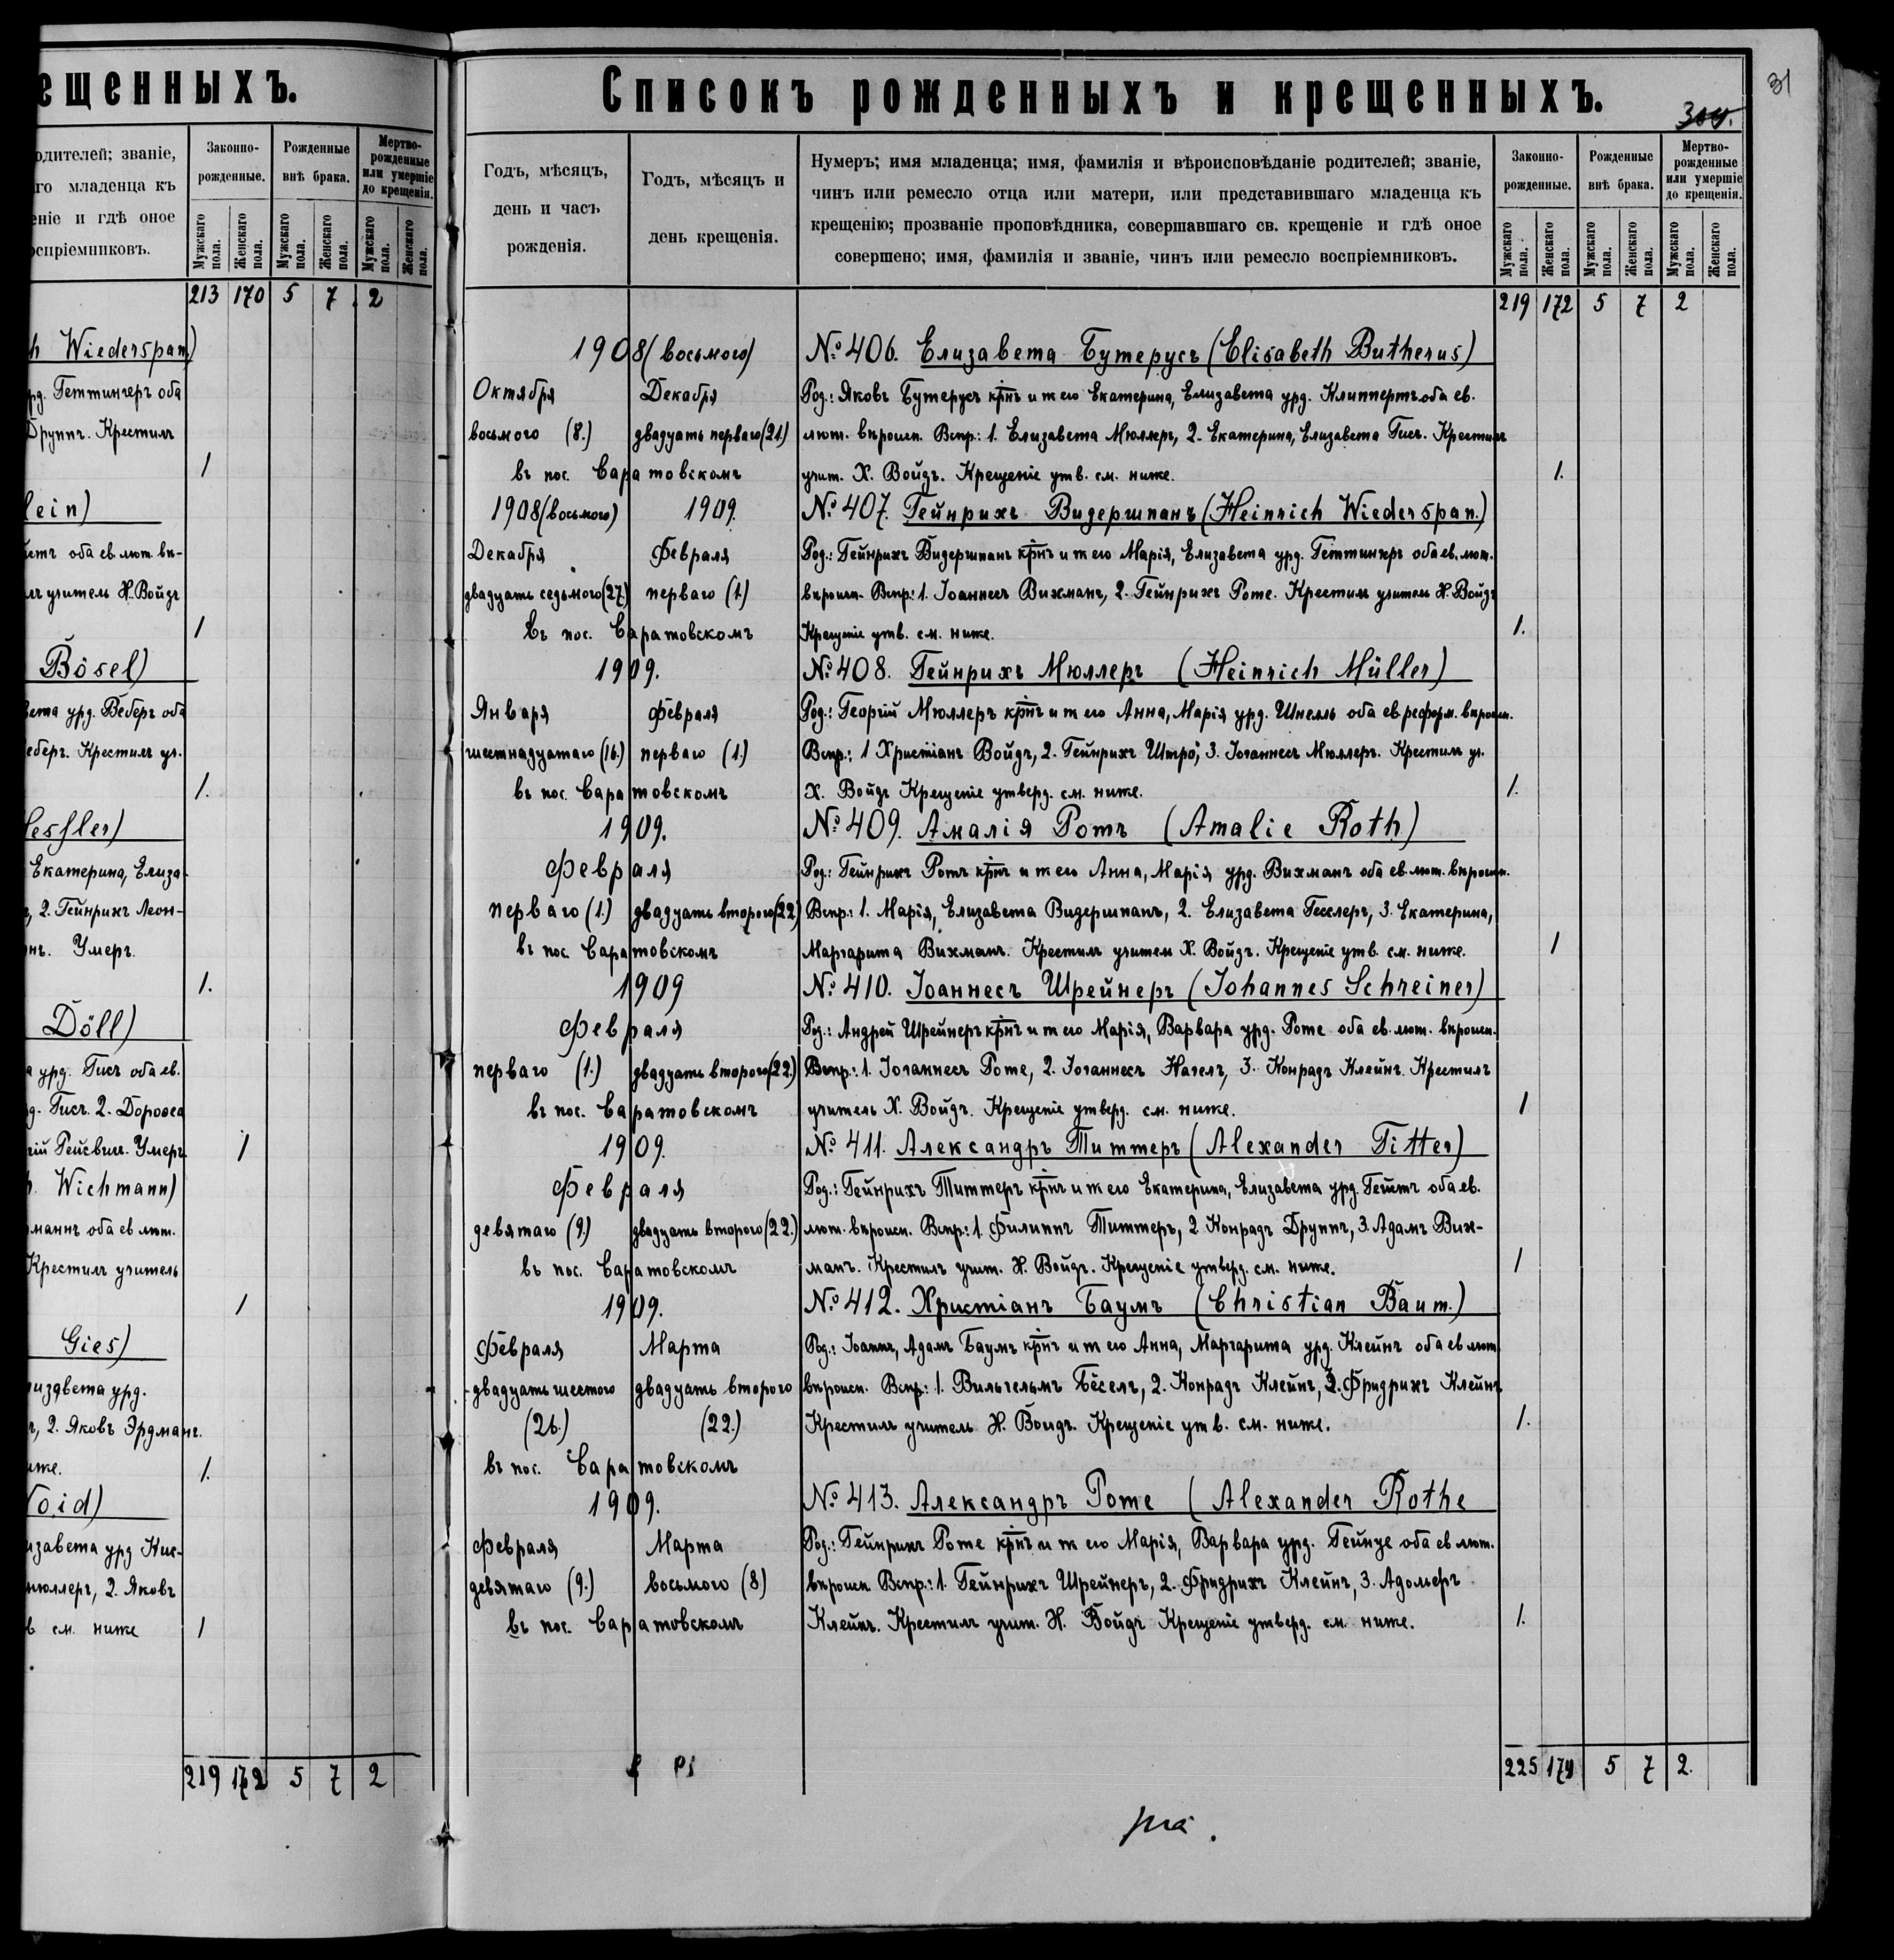 ещенныхъ.
одителей; званіе,
го младенца къ
еніе и гдѣ оное
оспріемниковъ.
Законно-
рожденные.
Рожденные
внѣ брака.
Мертво-
рожденные
или умершіе
до крещенія.
Мужскаго пола.
Женскаго пола.
Мужскаго пола.
Женскаго пола.
Мужскаго пола.
Женскаго пола.
213 170 5 7 2
h Wiederspan)
рд. Геттингеръ оба
Друппъ. Крестилъ
1
lein)
оба ев. лют. вѣ-
лъ учитель Х. Войдъ
1
Bösel)
вета урд. Веберъ оба
еберъ. Крестилъ уч.
1.
essler)
Екатерина, Елиза-
, 2. Гейнрихъ Леон-
нъ. Умеръ.
1.
Döll)
а урд. Гисъ оба ев.
д. Гисъ. 2. Доровеа
гій Рейсвихъ. Умеръ.
1
h. Wichmann)
манъ оба ев. лют.
Крестилъ учитель
1
Gies)
изавета урд.
ъ, 2. Яковъ Эрдманъ.
иже.
1.
Void)
изавета урд. Кис-
мюллеръ, 2. Яковъ
в см. ниже
1
219 172 5 7 2
Списокъ рожденныхъ и крещенныхъ.
31
Годъ, мѣсяцъ,
день и часъ
рожденія.
Годъ, мѣсяцъ и
день крещенія.
Нумеръ; имя младенца; имя, фамилія и вѣроисповѣданіе родителей; званіе,
чинъ или ремесло отца или матери, или представившаго младенца къ
крещенію; прозваніе проповѣдника, совершавшаго св. крещеніе и гдѣ оное
совершено; имя, фамилія и званіе, чинъ или ремесло воспріемниковъ.
Законно-
рожденные.
Рожденные
внѣ брака.
Мертво-
рожденные
или умершіе
до крещенія.
Мужскаго пола.
Женскаго пола.
Мужскаго пола.
Женскаго пола.
Мужскаго пола.
Женскаго пола.
219 172 5 7 2
1908 (восьмого) №406. Елизавета Бутерусъ (Elisabeth Butherus)
Октября Декабря Род.: Яковъ Бутерусъ крнъ и ж его Екатерина, Елизавета урд. Клиппертъ оба ев.
восьмого (8.) двадцать перваго (21.) лют. вѣроисп. Вспр.: 1. Елизавета Мюллеръ, 2. Екатерина, Елизавета Гисъ. Крестилъ
въ пос. Саратовскомъ учит. Х. Войдъ. Крещеніе утв. см. ниже. 1.
1908 (восьмого) 1909. №407. Гейнрихъ Видершпанъ (Heinrich Wiederspan.)
Декабря Февраля Род.: Гейнрихъ Видершпанъ крнъ и ж его Марія, Елизавета урд. Геттингеръ оба ев. лют.
двадцать седьмого (27.) перваго (1.) вѣроисп. Вспр.: 1. Іоаннесъ Вихманъ, 2. Гейнрихъ Роте. Крестилъ учитель Х. Войдъ
въ пос. Саратовскомъ Крещеніе утв. см. ниже. 1.
1909. №408. Гейнрихъ Мюллеръ (Heinrich Müller)
Января Февраля Род.: Георгій Мюллеръ крнъ и ж его Анна, Марія урд. Шнелль оба ев. реформ. вѣроисп.
шестнадцатаго (16.) перваго (1.) Вспр.: 1 Христіанъ Войдъ, 2. Гейнрихъ Штро, 3. Іоганнесъ Мюллеръ. Крестилъ уч.
въ пос. Саратовскомъ Х. Войдъ Крещеніе утверд. см. ниже. 1.
1909. №409. Амалія Ротъ (Amalie Roth)
Февраля Род.: Гейнрихъ Ротъ крнъ и ж его Анна, Марія урд. Вихманъ оба ев. лют. вѣроисп.
перваго (1.) двадцать второго (22) Вспр.: 1. Марія, Елизавета Видершпанъ, 2. Елизавета Гесслеръ, 3. Екатерина,
въ пос. Саратовскомъ Маргарита Вихманъ. Крестилъ учитель Х. Войдъ. Крещеніе утв. см. ниже. 1
1909 №410. Іоаннесъ Шрейнеръ (Johannes Schreiner)
Февраля Род.: Андрей Шрейнеръ крнъ и ж его Марія, Варвара урд. Роте оба ев. лют. вѣроисп.
перваго (1.) двадцать второго (22.) Вспр.: 1. Іоганнесъ Роте, 2. Іоганнесъ Нагель, 3. Конрадъ Клейнъ. Крестилъ
въ пос. Саратовскомъ учитель Х. Войдъ. Крещеніе утверд. см. ниже. 1
1909. №411. Александръ Титтеръ (Alexander Titter)
Февраля Род.: Гейнрихъ Титтеръ крнъ и ж его Екатерина, Елизавета урд. оба ев.
девятаго (9.) двадцать второго (22.) лют. вѣроисп. Вспр.: 1. Филиппъ Титтеръ, 2. Конрадъ Друппъ, 3. Адамъ Вих-
въ пос. Саратовскомъ манъ. Крестилъ учит. Х. Войдъ. Крещеніе утверд. см. ниже. 1
1909. №412. Христіанъ Баумъ (Christian Baum.)
Февраля Марта Род.: Іоаннъ, Адамъ Баумъ крнъ и ж его Анна, Маргарита урд. Клейнъ оба ев лют.
двадцать шестого двадцать второго вѣроисп. Вспр.: 1. Вильгельмъ Бёсель, 2. Конрадъ Клейнъ, 3. Фридрихъ Клейнъ
(26.) (22.) Крестилъ учитель Х. Войдъ. Крещеніе утв. см. ниже. 1.
въ пос. Саратовскомъ
1909. №413. Александръ Роте (Alexander Rothe
Февраля Марта Род.: Гейнрихъ Роте крнъ и ж его Марія, Варвара урд. Гейнце оба ев лют.
девятаго (9.) восьмого (8) вѣроисп. Вспр.: 1. Гейнрихъ Шрейнеръ, 2. Фридрихъ Клейнъ, 3. Адольфъ
въ пос. Саратовскомъ Клейнъ. Крестилъ учит. Х. Войдъ Крещеніе утверд. см. ниже. 1.
225 174 5 7 2.